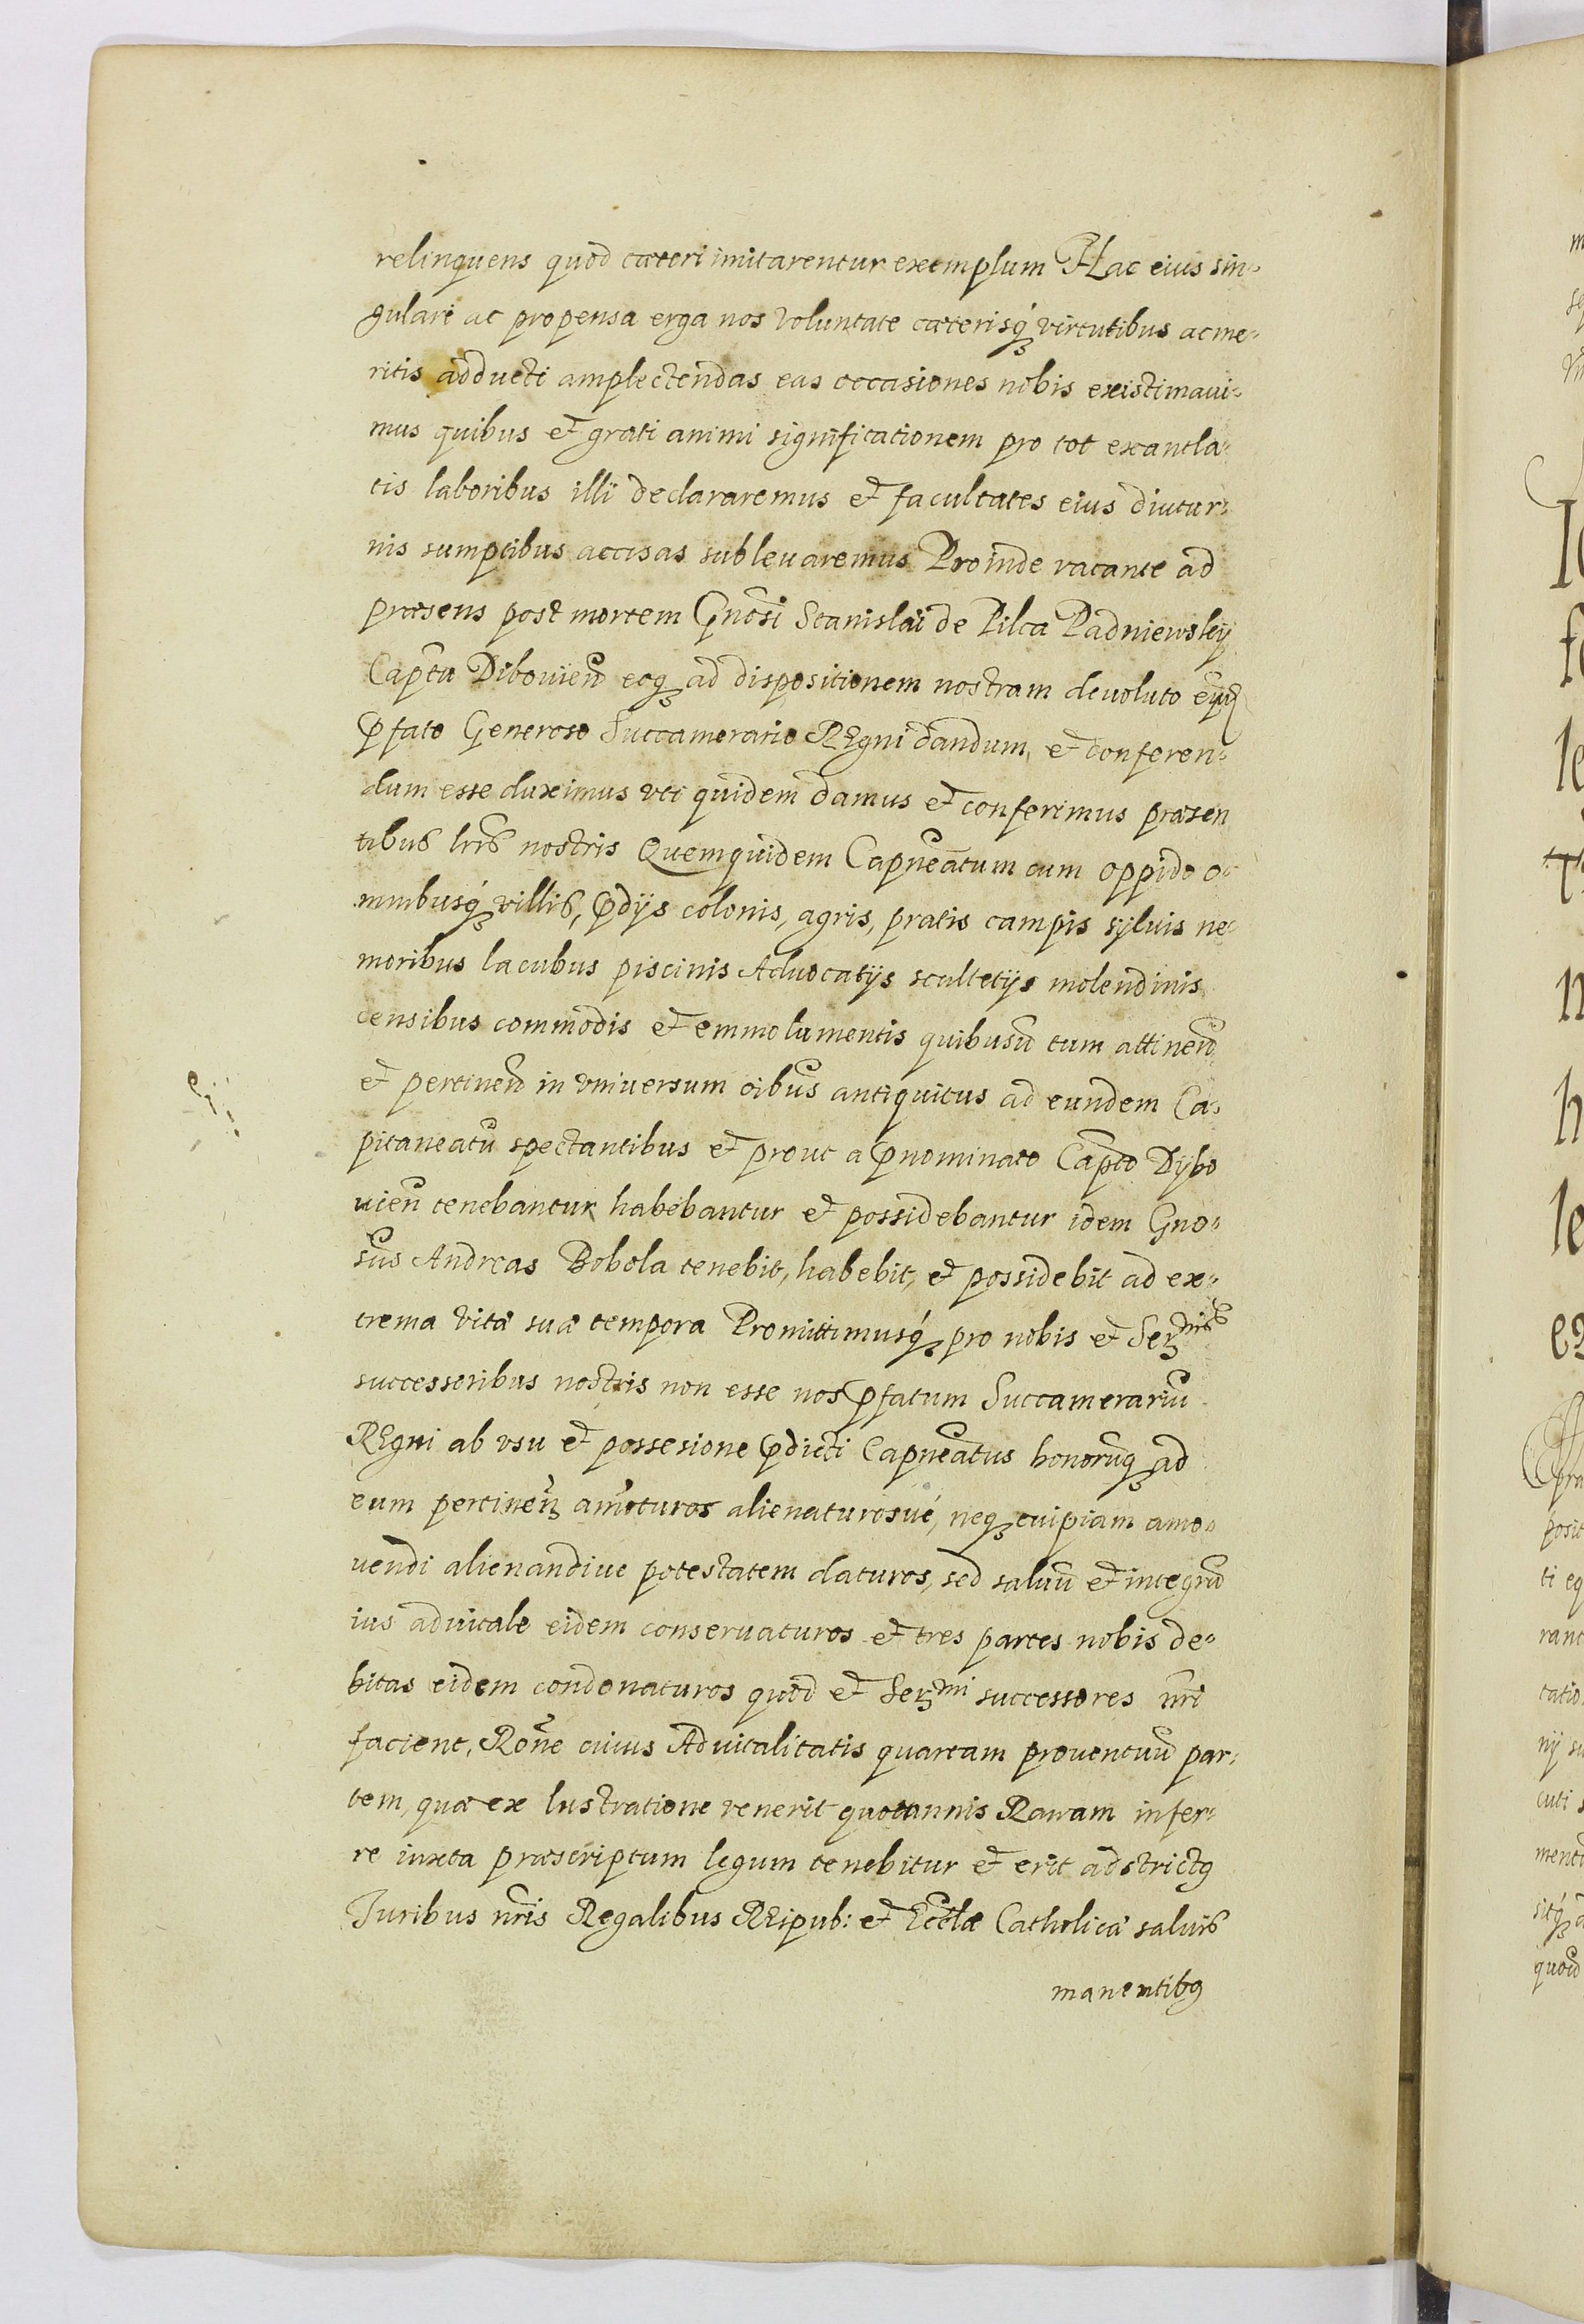 relinquens quod cæteri imitarentur exemplum Hac eius sin-
gulari ac propensa erga nos voluntate cæterisq́ꝫ virtutibus ac me-
ritis adducti amplectendas eas occasiones nobis existimaui-
mus quibus et grati animi significationem pro tot exantla-
tis laboribus illi declararemus et facultates eius diutur-
nis sumptibus accisas subleuaremus Proinde vacante ad
præsens post mortem Gnosi Stanislai de Pilca Padniewsky
Captu Dibouien̄ eoqꝫ ad dispositionem nostram deuoluto
p̄fato Generoso Succamerario REgni dandum, et conferen-
dum esse duximus vti quidem damus et conferimus præsen
tibus lr̄is nostris Quemquidem Capn̄eatum cum oppido o-
mnibusq́ꝫ villis, p̄dijs colonis, agris, pratis campis syluis ne-
moribus lacubus piscinis Aduocatijs scultetijs molendinis
censibus commodis et emmolumentis quibusū tum attinen̄
et pertinen̄ in vniuersum oībus antiquitus ad eundem Ca-
pitaneatū spectantibus et prout a p̄nominato Capt̄o Dybo
uien̄ tenebantur habebantur et possidebantur idem Gno-
sus Andreas Bobola tenebit, habebit, et possidebit ad ex-
trema vitæ suæ tempora Promittimusq́ꝫ pro nobis et Serꝫnis
successoribus nostris non esse nos p̄fatum Succamerariū
REgni ab vsu et possesione p̄dicti Capn̄eatus bonorūqꝫ ad
eum pertinen̄ amoturos alienaturosué, neqꝫ cuipiam amo-
uendi alienandiue potestatem daturos, sed saluū et integrū
ius aduitale eidem conseruaturos et tres partes nobis de-
bitas eidem condonaturos quod et Serꝫmi successores nr̄i
facient, Rōne cuius Aduitalitatis quartam prouentuū par-
tem, quæ ex lustratione venerit quotannis Rauam infer-
re iuxta præscriptum legum tenebitur et erit adstrictꝰ
Juribus nr̄is Regalibus REipub: et Eccłæ Catholicæ saluis
manentibꝰ